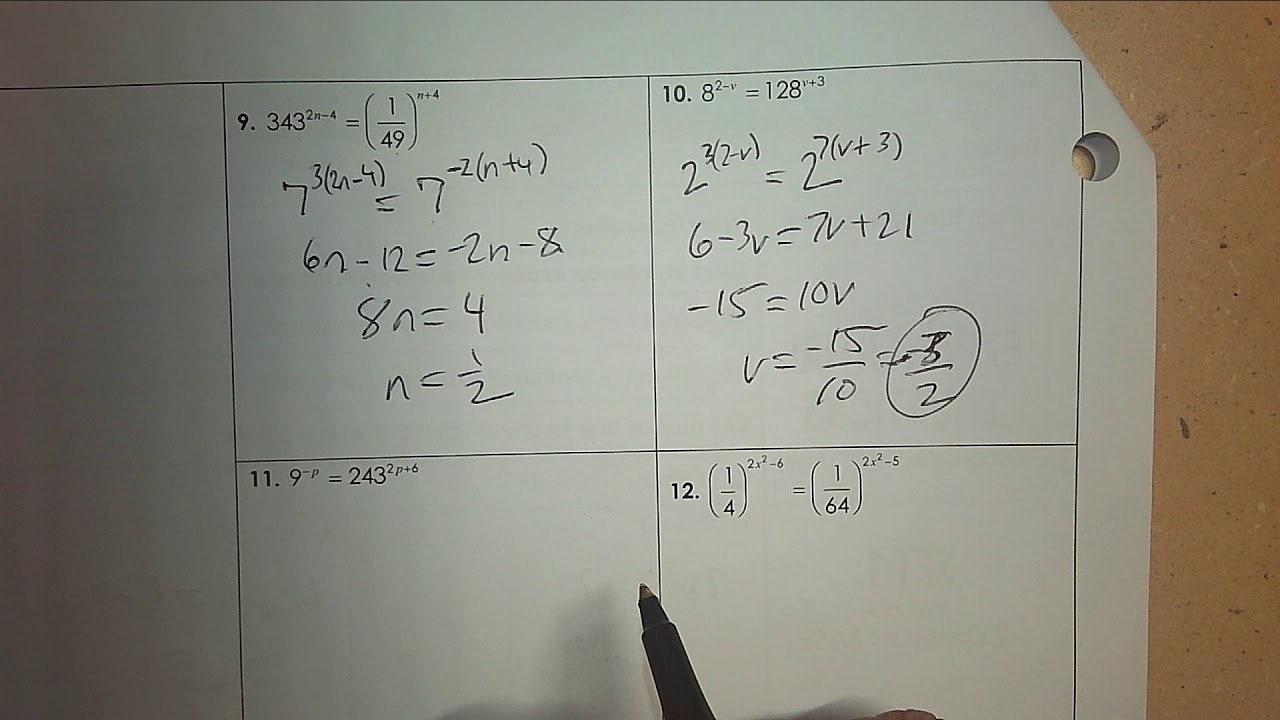 9. 343^{2n-4} = (1/49)^{n+4}
7^{3(2n-4)} = 7^{-2(n+4)}
6n - 12 = -2n - 8
8n = 4
n = 1/2
10. 8^{2-v} = 128^{v+3}
2^{3(2-v)} = 2^{7(v+3)}
6 - 3v = 7v + 21
-15 = 10v
v = -15/10 = -3/2
11. 9^{-p} = 243^{2p+6}
12. (1/4)^{2x²-6} = (1/64)^{2x²-5}